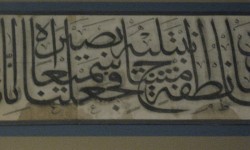 نطفة امشاج نبتليه فجعلناه سميعا بصيرا انا